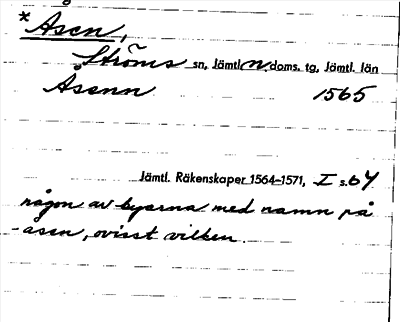 *Asen,
Ströms sn, Jämtl. n. doms. tg, Jämtl. län
Åsenn 1565
Jämtl. Räkenskaper 1564–1571, I s. 64
någon av byarna med namn på
-åsen, ovisst vilken.